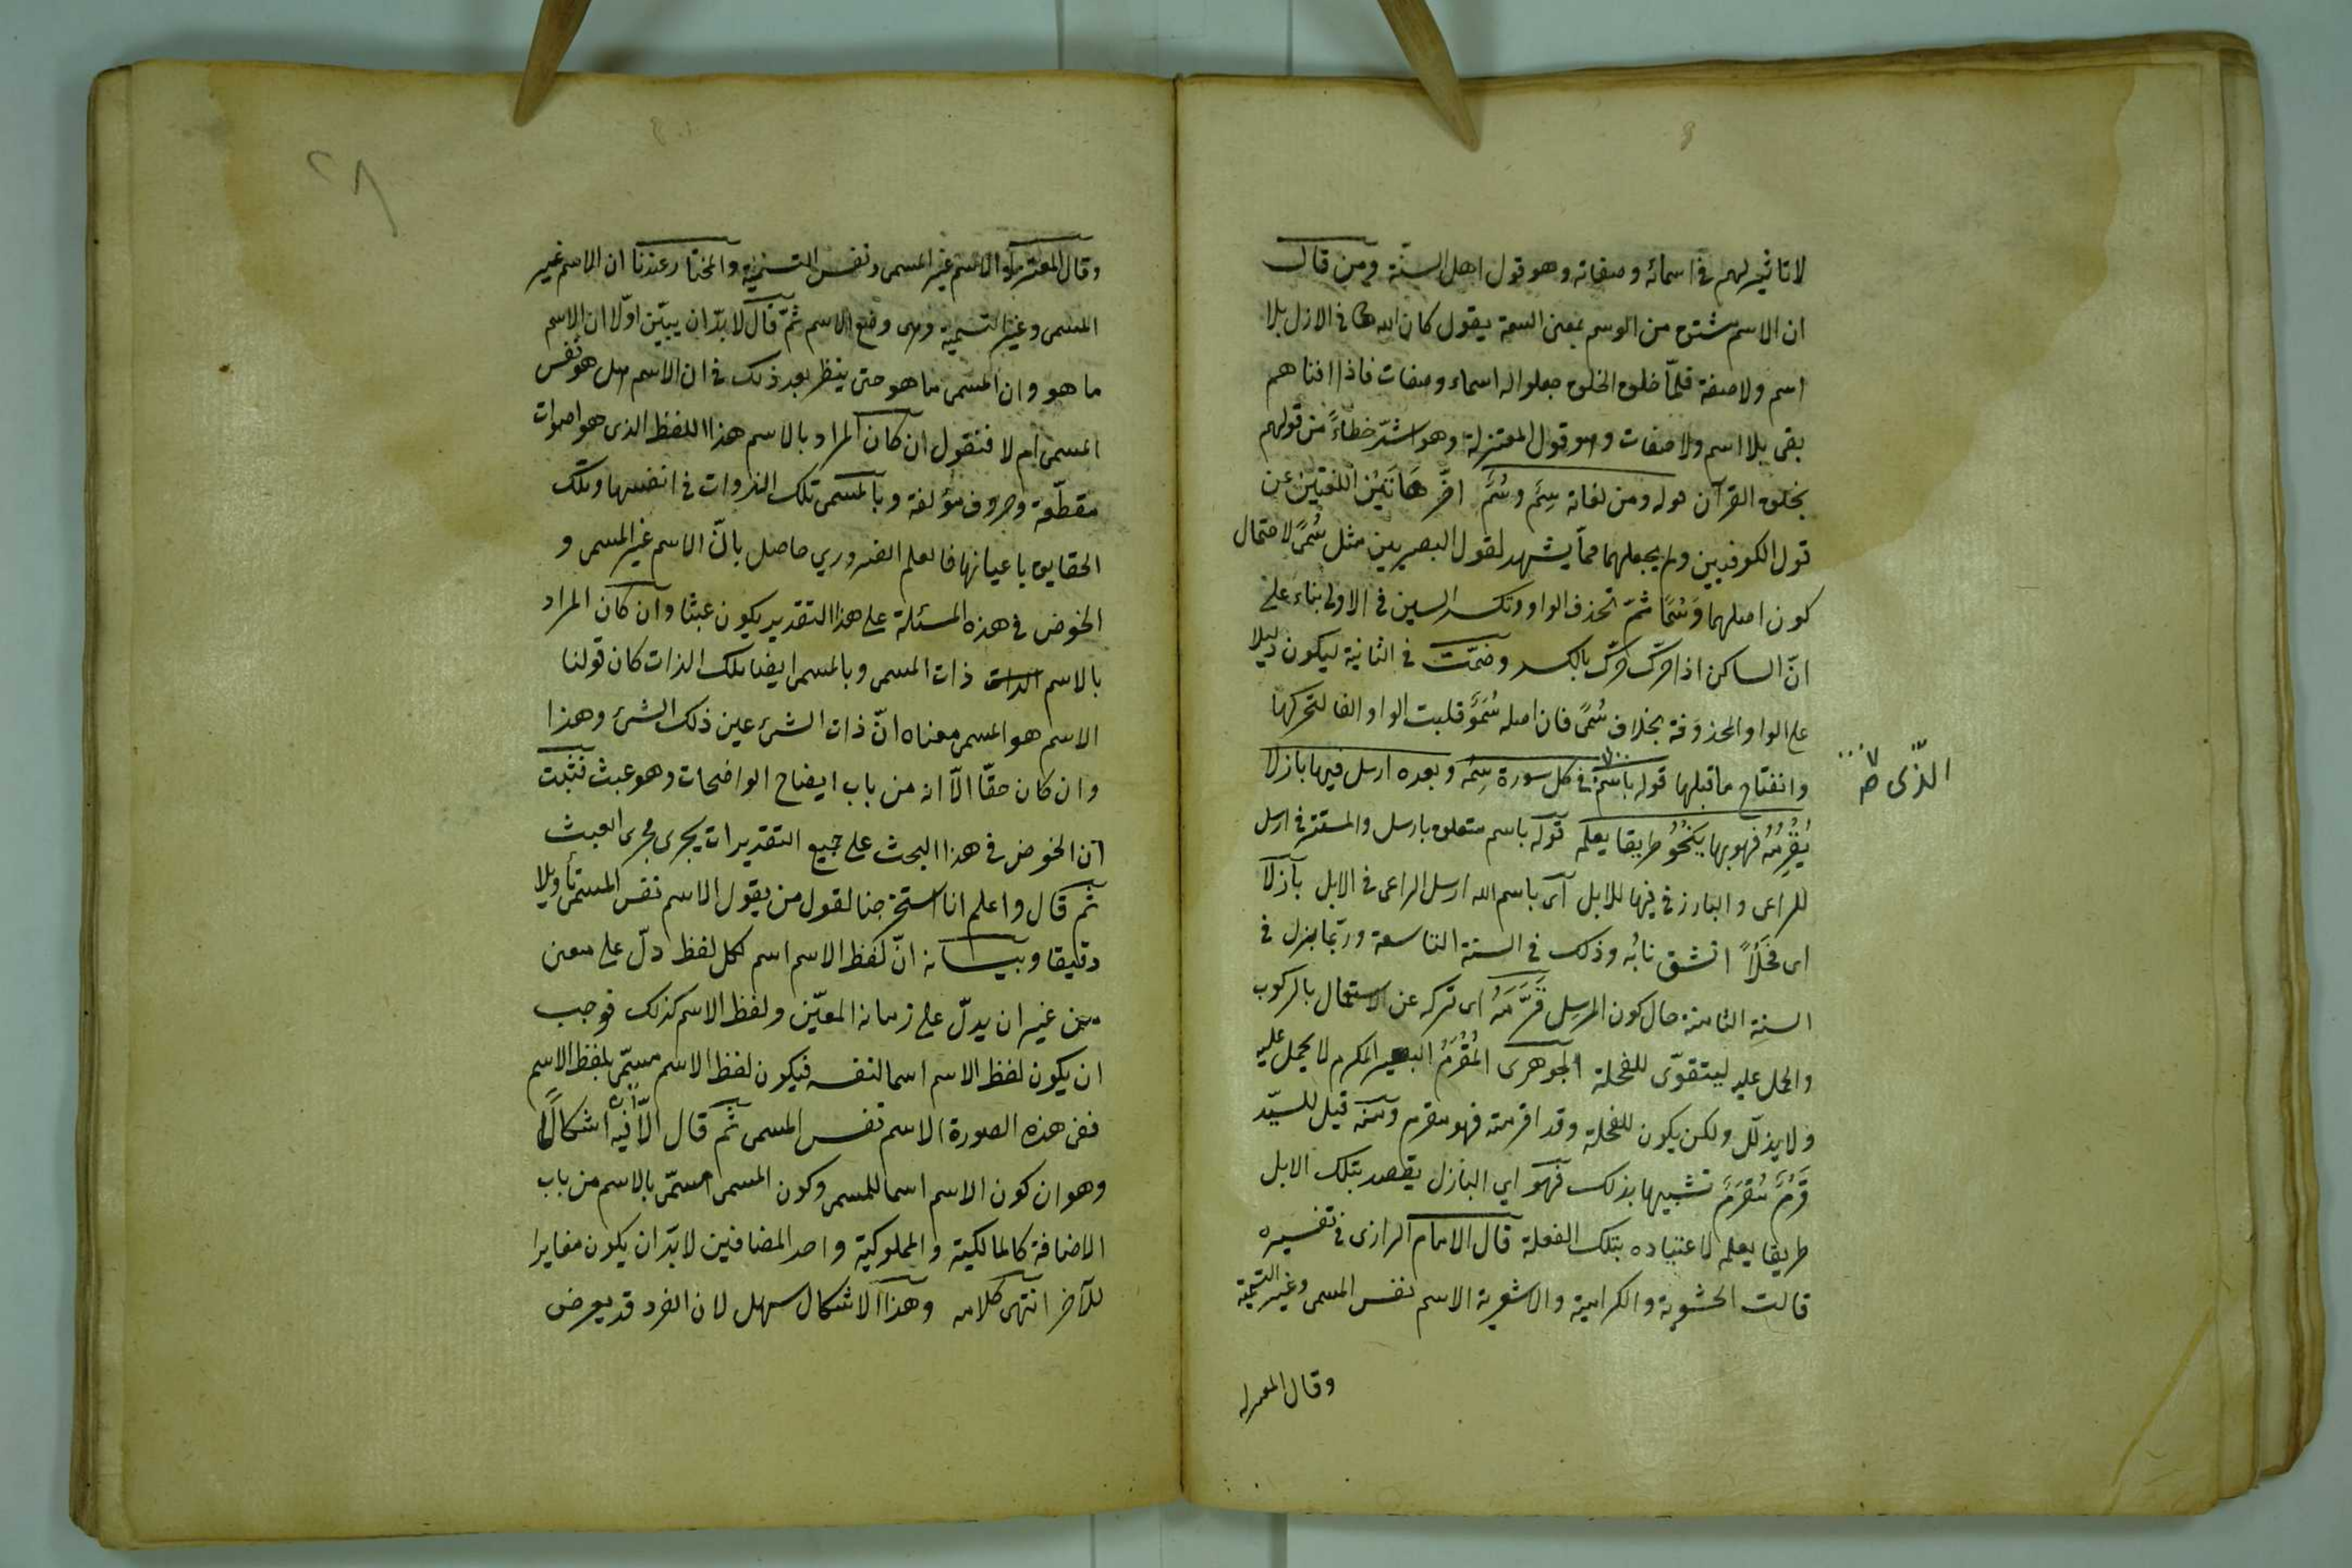 لا تاثير لهم في اسمائه وصفاته وهو قول اهل السنّة ومن قال
ان الاسم مشتق من الوسم بمعنى السمة يقول كان الله تعالى في الازل بلا
اسم ولا صفة فلمّا خلق الخلق جعلوا له اسماء وصفات فاذا افناهم
بقى بلا اسم ولا صفات وهو قول المعتزلة وهو اشدّ خطاءً من قولهم
بخلق القرآن قوله ومن لغاته سِمٌ وسُمٌ اخّر هَاتَيْنِ اللغتين عن
قول الكوفيين ولم يجعلهما ممّا يشهد لقول البصريين مثل سُمًى لاحتمال
كون اصلهما وَسْمًا ثمّ تحذف الواو وتكسر السين في الاولى بناء على
انّ الساكن اذا حرّك حرّك بالكسر وضمّت في الثانية ليكون دليلا
على الواو المحذوفة بخلاف سُمًى فان اصله سُمَوٌ قلبت الواو الفا لتحركها
وانفتاح ما قبلها قوله باسم في كل سورة سِمُه وبعده ارسل فيها بازلا
الذّى صح
يُقْرِمُهُ فهو بها يَنْحُو طريقا يعلمه قوله باسم متعلق بارسل والمستتر في ارسل
للراعى والبارز في فيها للابل آى باسم الله ارسل الراعى في الابل بآزلا
اى فَحْلًا انشق نابُه وذلك في السنة التاسعة وربّما بزل في
السنة الثامنة حال كون المرسل قَرَّمَهُ اى تركه عن الاستعمال بالركوب
والحمل عليه ليتقوّى للفحلة الجوهرى المُقْرَمُ البعير المكرم لا يحمل عليه
ولا يذلّل ولكن يكون للفحلة وقد اقرمته فهو مقرم ومنه قيل للسيّد
قَرْمٌ مُقْرَمٌ تشبيها بذلك فهو اي البازل يقصد بتلك الابل
طريقا يعلمه لاعتياده بتلك الفعلة قال الامام الرازى في تفسيره
قالت الحشوية والكرامية والاشعرية الاسم نفس المسمى وغير التسمية
وقال المعتزلة
وقال المعتزلة الاسم غير المسمى ونفس التسمية والمختار عندنا ان الاسم غير
المسمى وغير التسمية وهى وضع الاسم ثمّ قال لا بدّ ان يبيّن اوّلا ان الاسم
ما هو وان المسمى ما هو حتى ينظر بعد ذلك في ان الاسم هل هو نفس
المسمى ام لا فنقول ان كان المراد بالاسم هذا اللفظ الذى هو اصوات
مقطّعة وحروف مؤلفة وبالمسمى تلك الذوات في انفسها وتلك
الحقايق باعيانها فالعلم الضروري حاصل بانّ الاسم غير المسمى و
الخوض في هذه المسئلة على هذا التقدير يكون عبثا وان كان المراد
بالاسم الذات ذات المسمى وبالمسمى ايضا تلك الذات كان قولنا
الاسم هو المسمى معناه انّ ذات الشئ عين ذلك الشئ وهذا
وان كان حقّا الّا انه من باب ايضاح الواضحات وهو عبث فثبت
آن الخوض في هذا البحث على جميع التقديرات يجرى مجرى العبث
ثم قال واعلم انا استخرجنا لقول من يقول الاسم نفس المسمّى تأويلا
دقيقا وبيانه انّ لفظ الاسم اسم لكل لفظ دلّ على معنى
من غير ان يدلّ على زمانه المعيّن ولفظ الاسم كذلك فوجب
ان يكون لفظ الاسم اسما لنفسه فيكون لفظ الاسم مسمّى بلفظ الاسم
ففى هذه الصورة الاسم نفس المسمى ثم قال الّا ان فيه اشكالًا
وهو ان كون الاسم اسما للمسمى وكون المسمى مسمّى بالاسم من باب
الاضافة كالمالكية والمملوكية واحد المضافين لا بدّ ان يكون مغايرا
للآخر انتهى كلامه وهذا الاشكال سهل لان الفرد قد يعرض